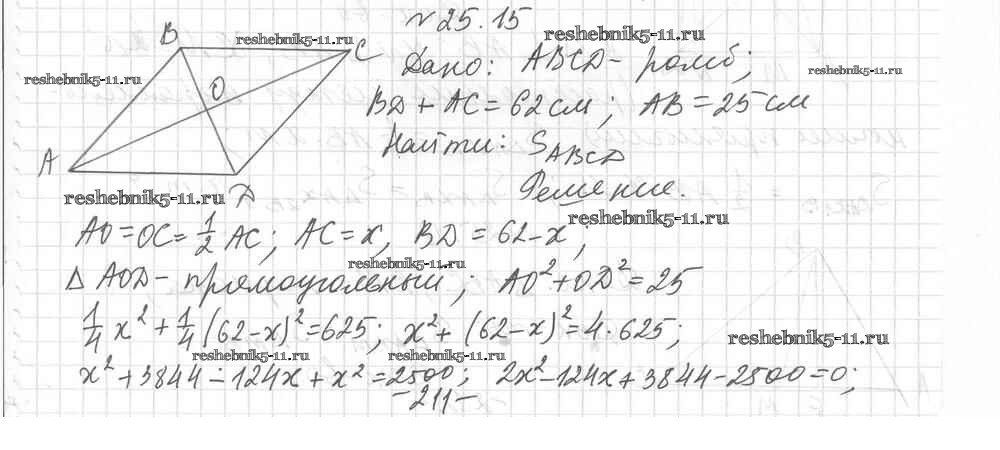 №25.15
B reshebnik5-11.ru C reshebnik5-11.ru
reshebnik5-11.ru O Дано: ABCD - ромб; reshebnik5-11.ru
BD + AC = 62 см; AB = 25 см
A Найти: S_ABCD
reshebnik5-11.ru D Решение.
reshebnik5-11.ru
AO = OC = 1/2 AC; AC = x, BD = 62 - x;
reshebnik5-11.ru
Δ AOD - прямоугольный; AO² + OD² = 25
1/4 x² + 1/4 (62 - x)² = 625; x² + (62 - x)² = 4·625;
reshebnik5-11.ru reshebnik5-11.ru reshebnik5-11.ru
x² + 3844 - 124x + x² = 2500; 2x² - 124x + 3844 - 2500 = 0;
- 211 -